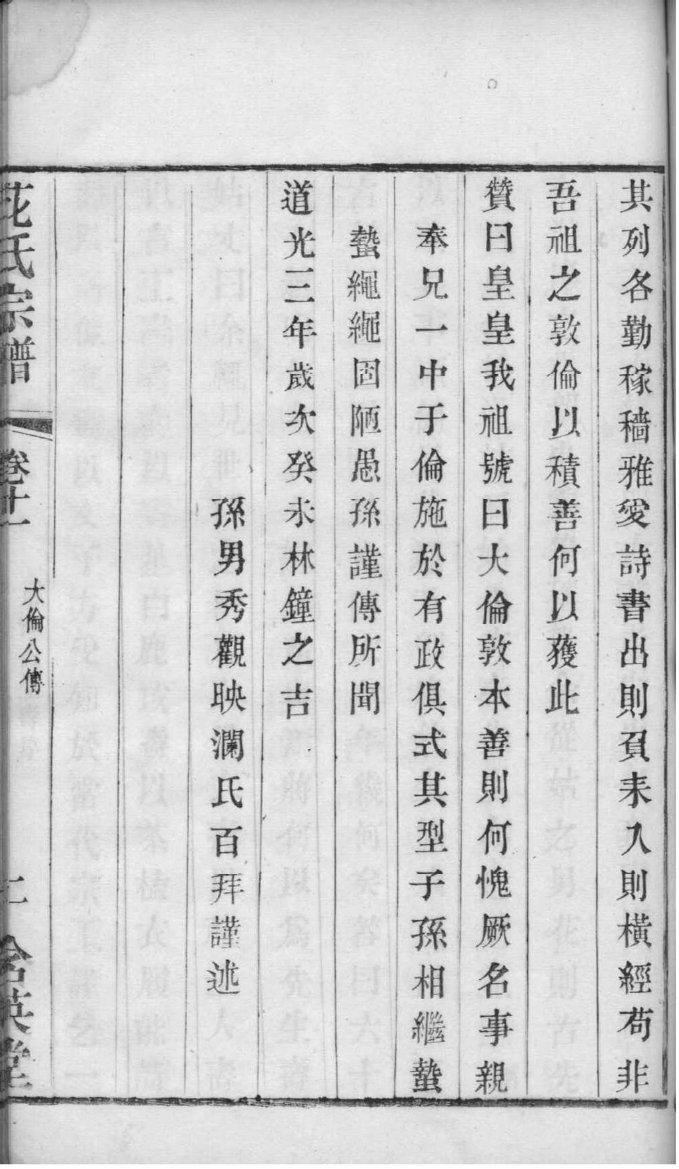 其列各勤稼穡雅愛詩書出則負耒入則橫經苟非
吾祖之敦倫以積善何以獲此
贊曰皇皇我祖號曰大倫敦本善則何愧厥名事親
奉兄一中于倫施於有政俱式其型子孫相繼蟄
蟄繩繩固陋愚孫謹傳所聞
道光三年歲次癸未林鐘之吉
孫男秀觀映瀾氏百拜謹述
花氏宗譜
卷十一
大倫公傳
二
含英堂